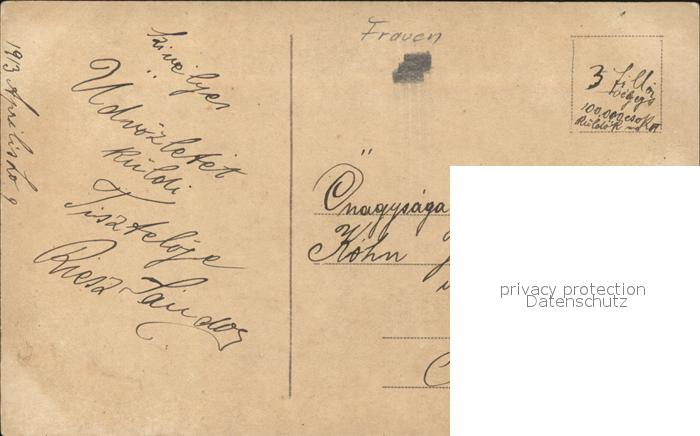 1913 Április hó 9
Szivélyes
Üdvözletét
küldi
Tisztelője
Riesz Sándor
Frauen
3 fillér
bélyeg
100,000 csokot
küldök
Őnagysága
Kohn
privacy protection
Datenschutz